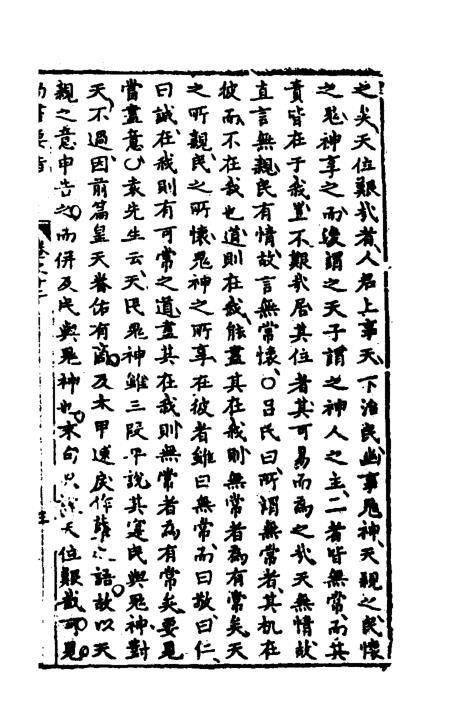 之矣天位艱哉者人君上事天下治民幽事鬼神天親之民懷
之鬼神享之而後謂之天子謂之神人之主二者皆無常而其
責皆在于我豈不艱哉居其位者其可易而為之哉天無情故
直言無親民有情故言無常懷○呂氏曰所謂無常者其机在
彼而不在我也道則在我能盡其在我則無常者為有常矣天
之所親民之所懷鬼神之所享在彼者雖曰無常而曰敬曰仁
曰誠在我則有可常之道盡其在我則無常者為有常矣要見
當盡意○袁先生云天民鬼神雖三段平說其寔民與鬼神對
天不過因前篇皇天眷佑有商及太甲速戾作孽之語故以天
親之意申告之而併及民與鬼神也末句只說天位艱哉可見